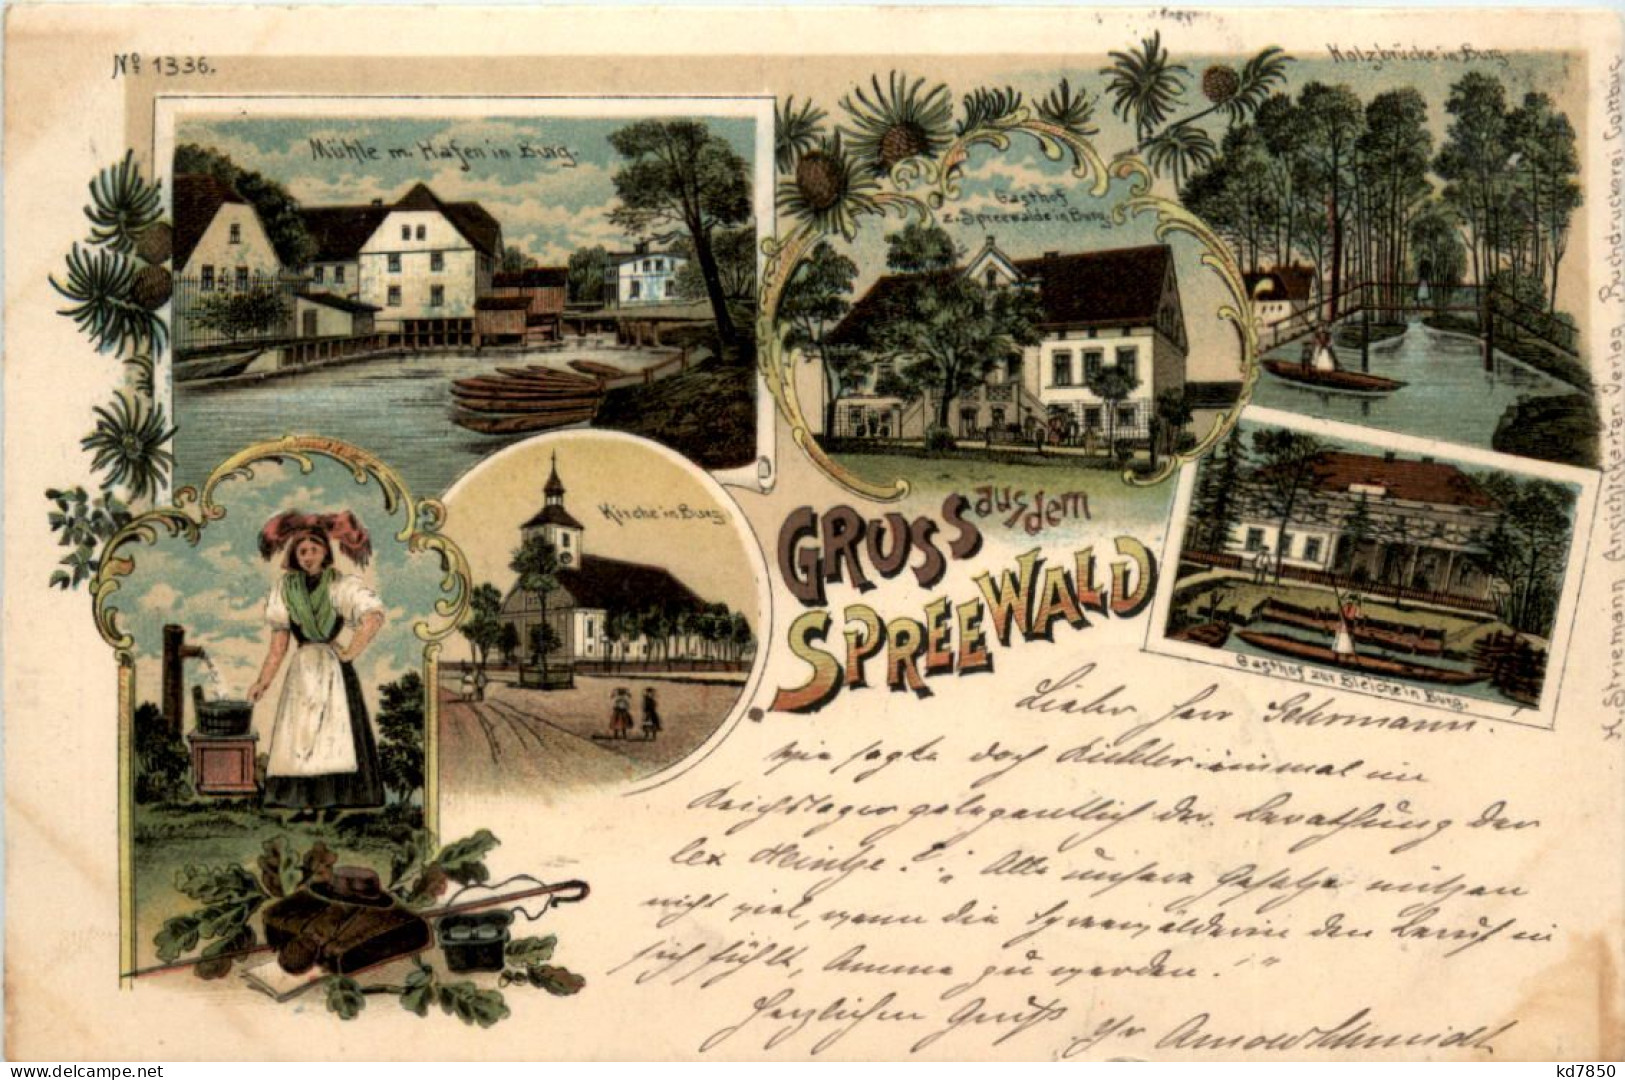 No 1336.
Mühle m. Hafen in Burg.
Gasthof
z. Spreewalde in Burg.
Holzbrücke in Burg.
Kirche in Burg
GRUSS aus dem
SPREEWALD
Gasthof zur Bleiche in Burg.
K. Striemann Ansichtskarten Verlag, Buchdruckerei Cottbus
Lieber Herr Gehrmann.
wie sagte doch Richter einmal im
Reichstage gelegentlich der Berathung der
lex Heintze? „Alle unsere Gesetze nützen
nicht viel, wenn die Spreewälderin den Beruf in
sich fühlt, Amme zu werden!"
Herzlichen Gruß
Ihr Arnold Schmidt
kd7850